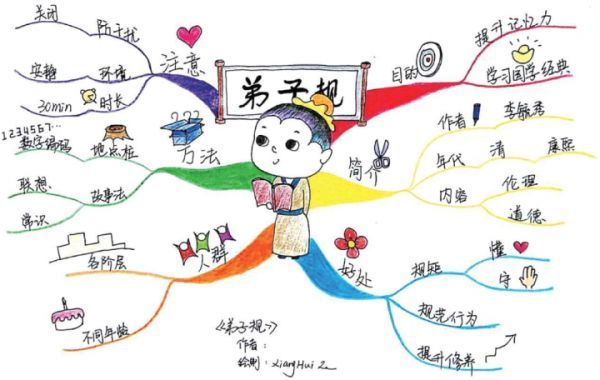 弟子规
目的
提升记忆力
学习国学经典
简介
作者
李毓秀
年代
清
康熙
内容
伦理
道德
好处
规矩
懂
守
规范行为
提升修养
人群
各阶层
不同年龄
方法
地点桩
1234567...
数字编码
故事法
联想
常识
注意
防干扰
关闭
环境
安静
时长
30min
《弟子规》
作者：
绘制：XiangHui